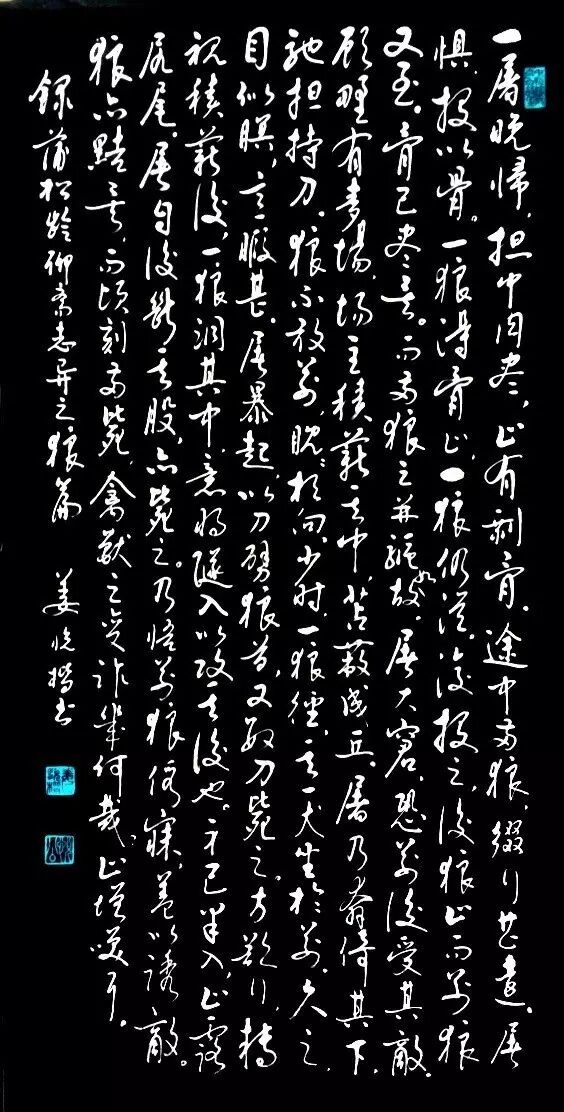 一屠晚歸，担中肉尽，止有剩骨。途中两狼，缀行甚遠。屠
惧，投以骨。一狼得骨止，一狼仍從。復投之，後狼止而前狼
又至。骨已尽矣。而两狼之并驱如故。屠大窘，恐前後受其敵。
顾野有麦場，場主積薪其中，苫蔽成丘。屠乃奔倚其下，
弛担持刀。狼不敢前，眈眈相向。少时，一狼徑去，其一犬坐於前。久之，
目似瞑，意暇甚。屠暴起，以刀劈狼首，又数刀毙之。方欲行，轉
視積薪後，一狼洞其中，意将隧入以攻其後也。身已半入，止露
尻尾。屠自後断其股，亦毙之。乃悟前狼假寐，盖以誘敵。
狼亦黠矣，而顷刻两毙，禽獸之变诈幾何哉。止增笑耳。
録蒲松龄聊斋志异之狼篇 姜 书